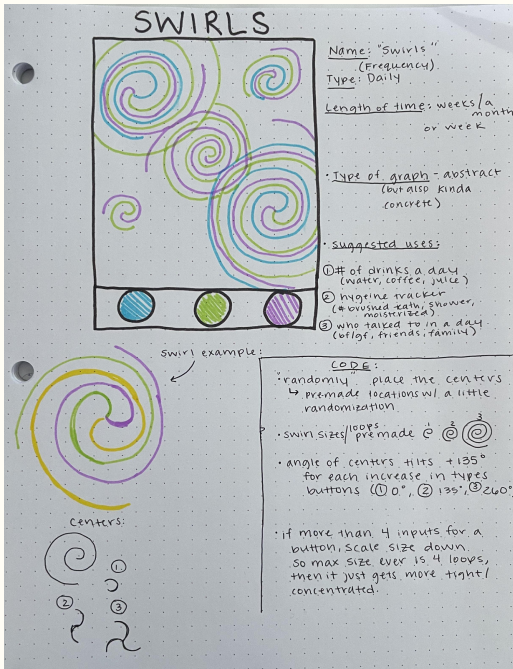 SWIRLS
Name: "Swirls"
(Frequency)
Type: Daily
Length of time: weeks/a
month
or week
• Type of graph - abstract
(but also kinda
concrete)
• suggested uses:
① # of drinks a day
(water, coffee, juice)
② hygeine tracker
(# brushed teeth, shower,
moisterized)
③ who talked to in a day
(bf/gf, friends, family)
swirl example:
CODE:
"randomly" place the centers
↳ premade locations w/ a little
randomization
• swirl sizes/loops premade 1 2 3
• angle of centers tilts +135°
for each increase in types
buttons (① 0°, ② 135°, ③ 260°
• if more than 4 inputs for a
button, scale size down
so max size ever is 4 loops,
then it just gets more tight/
concentrated.
centers:
①
②
③